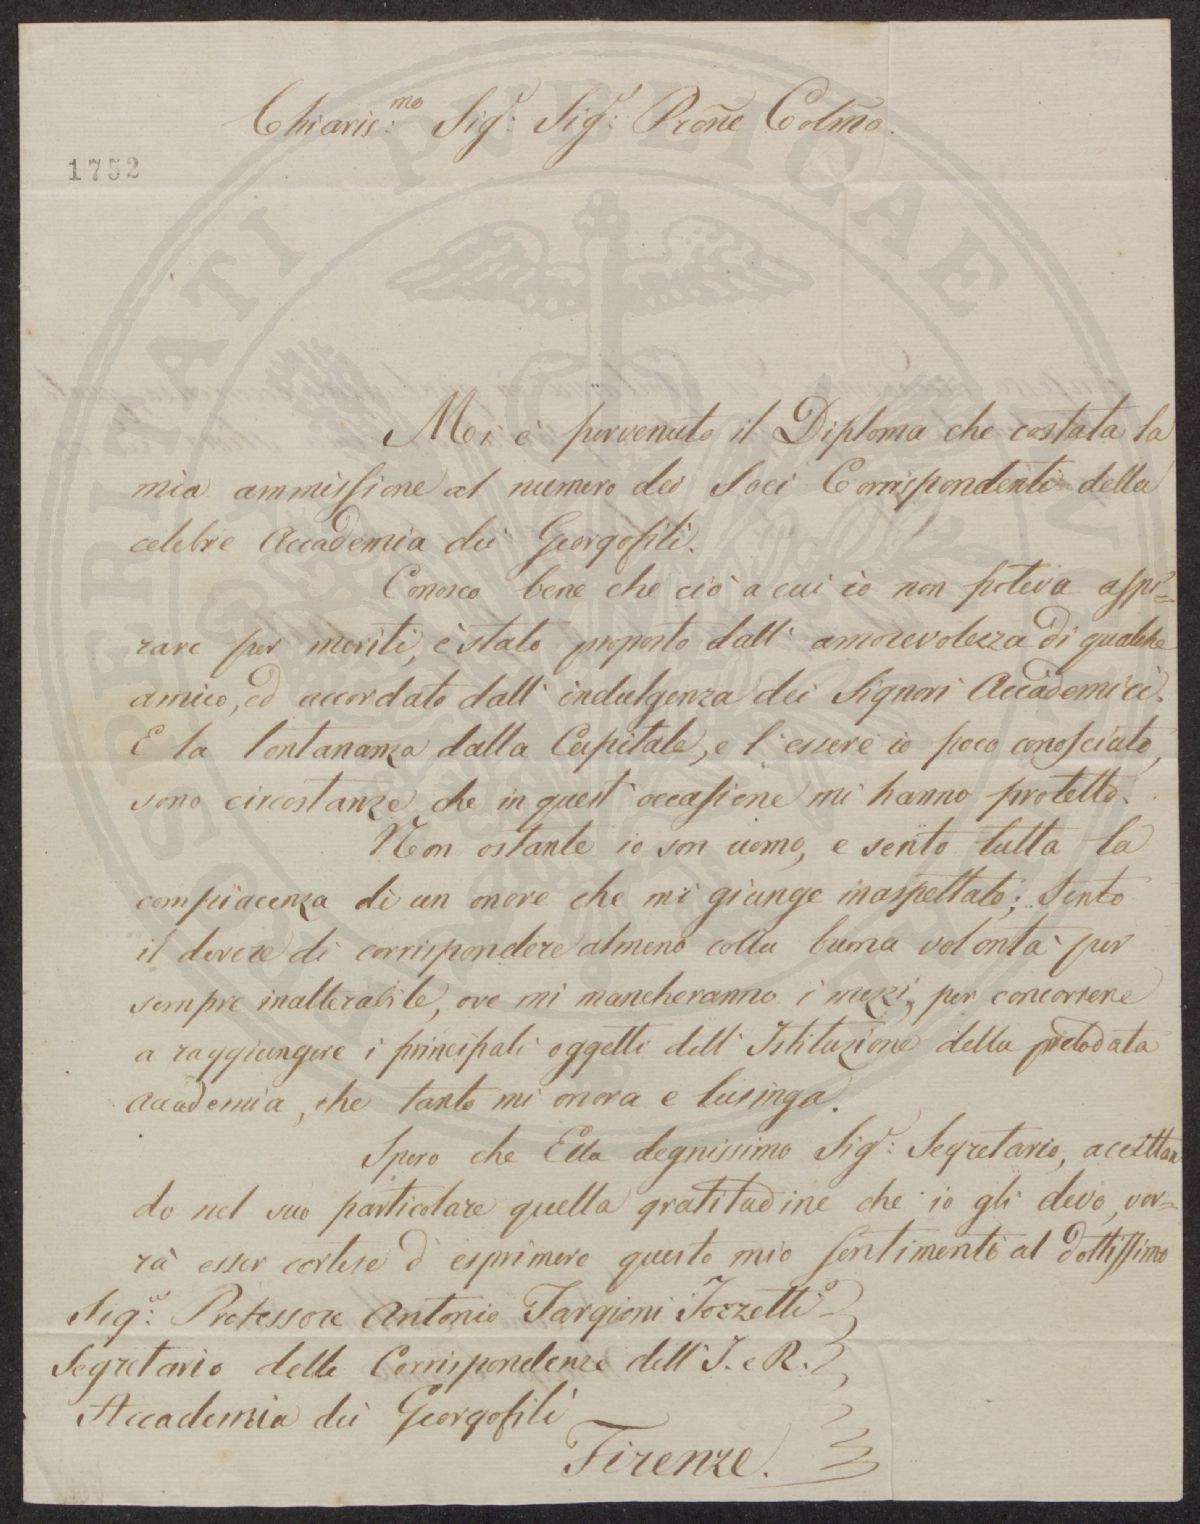 Chiaris:mo Sigr: Sigr: Prone Colmo.
1752
Mi è pervenuto il Diploma che costata la
mia ammissione al numero dei Soci Corrispondenti della
celebre Accademia dei Georgofili.
Conosco bene che ciò a cui io non poteva aspi=
rare per meriti, è stato proposto dall' amorevolezza di qualche
amico, ed accordato dall' indulgenza dei Signori Accademici.
E la lontananza dalla Capitale, e l'essere io poco conosciuto,
sono circostanze che in quest' occasione mi hanno protetto.
Non ostante io son uomo, e sento tutta la
compiacenza di un onore che mi giunge inaspettato; Sento
il dovere di corrispondere almeno colla buona volontà per
sempre inalterabile, ove mi mancheranno i mezzi, per concorrere
a raggiungere i principali oggetti dell' Istituzione della prelodata
Accademia, che tanto mi onora e lusinga.
Spero che Ella degnissimo Sigr: Segretario, accettan
do nel suo particolare quella gratitudine che io gli devo, vor=
rà esser cortese d' esprimere questo mio sentimento al dottissimo
Sigr: Professore Antonio Targioni Tozzetti
Segretario delle Corrispondenze dell' I. e R.
Accademia dei Georgofili
Firenze.